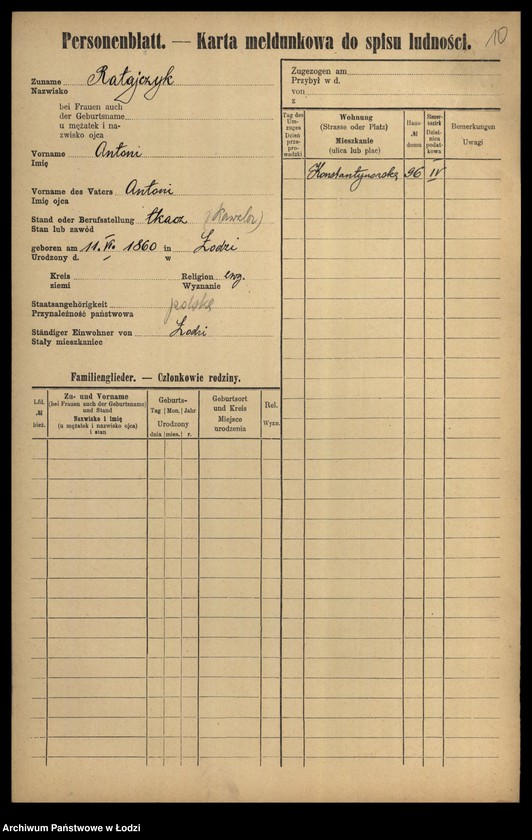 10
Personenblatt. — Karta meldunkowa do spisu ludności.
Zuname Ratajczyk
Nazwisko
bei Frauen auch
der Geburtsname
u mężatek i na-
zwisko ojca
Vorname Antoni
Imię
Vorname des Vaters Antoni
Imię ojca
Stand oder Berufsstellung tkacz (kawaler)
Stan lub zawód
geboren am 11. VI. 1860 in Łodzi
Urodzony d. w
Kreis Religion ewg.
ziemi Wyznanie
Staatsangehörigkeit polska
Przynależność państwowa
Ständiger Einwohner von Łodzi
Stały mieszkaniec
Familienglieder. — Członkowie rodziny.
Lfd. № bież.
Zu- und Vorname
(bei Frauen auch der Geburtsname)
und Stand
Nazwisko i imię
(u mężatek i nazwisko ojca)
i stan
Geburts-
Tag | Mon. | Jahr
Urodzony
dnia | mies. | r.
Geburtsort
und Kreis
Miejsce
urodzenia
Rel.
Wyzn.
Zugezogen am
Przybył w d.
von
z
Tag des
Um-
zuges
Dzień
prze-
pro-
wadzki
Wohnung
(Strasse oder Platz)
Mieszkanie
(ulica lub plac)
Haus-
№
domu
Steuer-
bezirk
Dziel-
nica
podat-
kowa
Bemerkungen
Uwagi
Konstantynowska 96 IV
Archiwum Państwowe w Łodzi